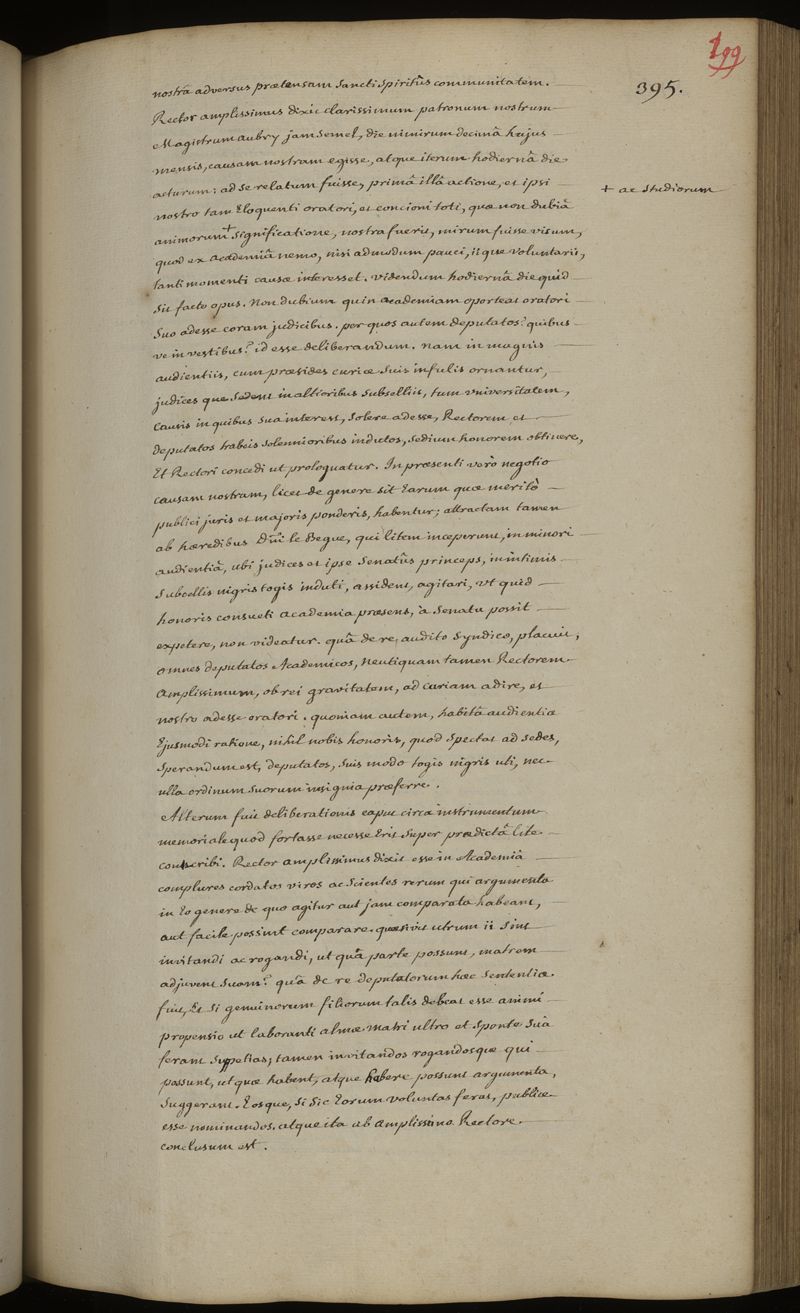 199
395.
nostrâ adversus prætensam Sancti Spiritûs communitatem.
Rector amplissimus dixit clarissimum patronum nostrum
Magistrum aubry jam semel, die nimirum decimâ hujus
mensis, causam nostram egisse, atque iterum hodiernâ die
acturum: ad se relatum fuisse, primâ illâ actione, et ipsi
nostro tam Eloquenti oratori, et concioni toti, quæ non dubiâ
animorum + significatione, nostra fuerit, mirum fuisse visum,
+ ac studiorum
quod ex academiâ nemo, nisi admodum pauci, iique voluntarii,
tanti momenti causæ interesset. videndum hodiernâ die quid
sit facto opus. Non dubium quin academiam oporteat oratori
suo adesse coram judicibus. per quos autem deputatos? quibus
ve in vestibus? id esse deliberandum. nam in magnis
audientiis, cum præsides curiæ suis infulis ornantur,
judices que sedent in altioribus subselliis, tum universitatem,
causis in quibus sua interest, solere adesse, Rectorem et
deputatos habitis solennioribus indutos, sedium honorem obtinere,
Et Rectori concedi ut proloquatur. In præsenti verò negotio
causam nostram, licet de genere sit Earum quæ meritò
publici juris et majoris ponderis, habentur; attractam tamen
ab hæredibus Dni le Begue, qui litem inceperunt, in minori
audientiâ, ubi judices et ipse Senatûs princeps, in infimis
subsellis nigris togis induti, assident, agitari, ut quid
honoris consueti academia præsens, à Senatu possit
expetere, non videatur. quâ de re, audito Syndico, placuit,
omnes deputatos Academicos, neutiquam tamen Rectorem
Amplissimum, ob rei gravitatem, ad curiam adire, et
nostro adesse oratori. quoniam autem, habitâ audientiæ
Ejusmodi ratione, nihil nobis honoris, quod spectat ad sedes,
sperandum est, deputatos, suis modo togis nigris uti, nec
ulla ordinum suorum insignia præferre.
Alterum fuit deliberationis caput circa instrumentum
memoriale quod fortasse necesse Erit super prædictâ lite
conscribi. Rector amplissimus dixit esse in Academiâ
complures cordatos viros ac scientes rerum qui argumenta
in Eo genere de quo agitur aut jam comparata habeant,
aut facile possint comparare. quæsivit utrum ii sint
invitandi ac rogandi, ut quâ parte possunt, matrem
adjuvent suam? quâ de re deputatorum hæc sententia
fuit, Et si genuinorum filiorum talis debeat esse animi
propensio ut laboranti almæ matri ultro et sponte suâ
ferant suppetias; tamen invitandos rogandosque qui
possunt, ut quæ habent, atque habere possunt argumenta,
suggerant. Eosque, si sic Eorum voluntas ferat, publice
esse nominandos. atque ita ab Amplissimo Rectore
conclusum est.